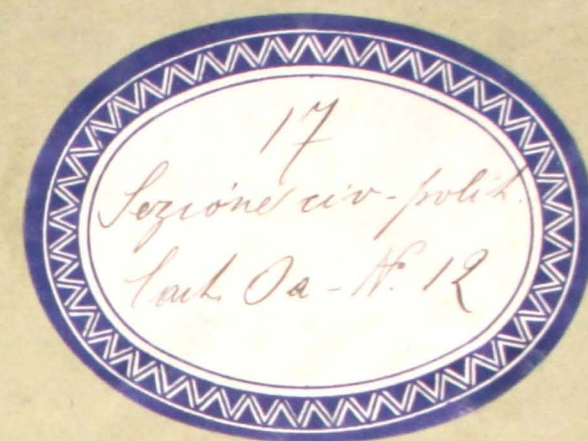 17
Sezione civ-polit.
Cart. Oa - N. 12